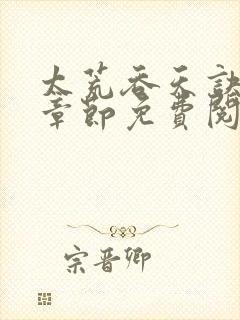 太荒吞天訣
章節免費閱
宗晉卿